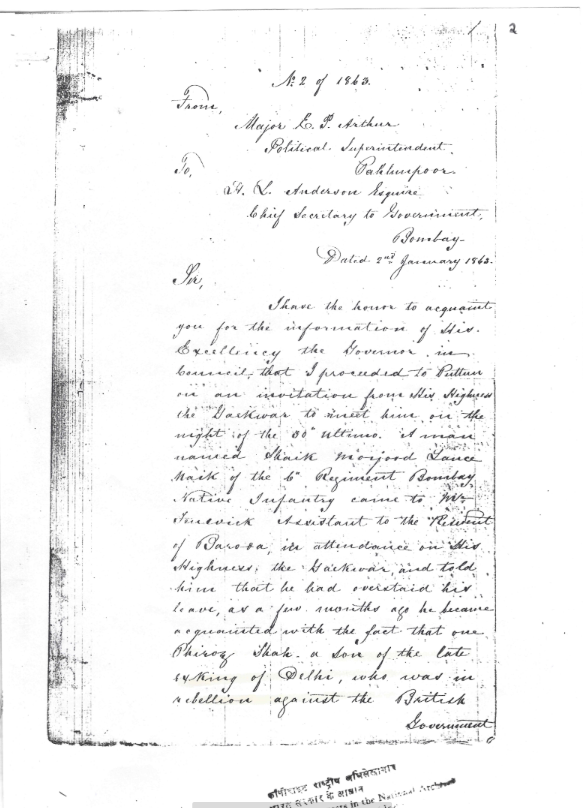 2
No. 2 of 1863.
From,
Major E. P. Arthur
Political Superintendent.
Pahlunpoor.
To,
H. L. Anderson Esquire
Chief Secretary to Government,
Bombay.
Dated 2nd January 1863.
Sir,
I have the honor to acquaint
you for the information of His
Excellency the Governor in
Council, that I proceeded to Puttun
on an invitation from His Highness
the Gaekwar to meet him on the
night of the 30th ultimo. A man
named Shaik Moujood Lance
Naik of the 6th Regiment Bombay
Native Infantry came to Mr
Assistant to the Resident
of Baroda, in attendance on His
Highness, the Gaekwar, and told
him that he had overstaid his
leave, as a few months ago he became
acquainted with the fact that one
Phiroz Shah a son of the late
exKing of Delhi, who was in
rebellion against the British
Government
राष्ट्रीय अभिलेखागार
भारत सरकार के
in the National Archives